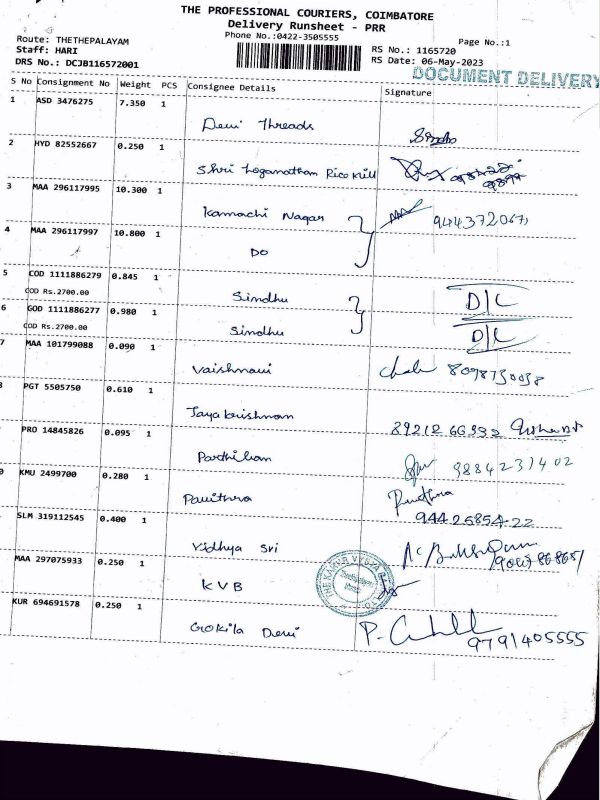 THE PROFESSIONAL COURIERS, COIMBATORE
Delivery Runsheet - PRR
Phone No.:0422-3505555
Route: THETHEPALAYAM
Staff: HARI
DRS No.: DCJB116572001
Page No.:1
RS No.: 1165720
RS Date: 06-May-2023
DOCUMENT DELIVERY
S No Consignment No Weight PCS Consignee Details Signature
1 ASD 3476275 7.350 1
Devi Threads
2 HYD 82552667 0.250 1
Shri Loganatham Rice Mill
3 MAA 296117995 10.300 1
Kamachi Nagar
4 MAA 296117997 10.800 1
DO
5 COD 1111886279 0.845 1
COD Rs.2700.00
Sindhu D/C
6 COD 1111886277 0.980 1
COD Rs.2700.00
Sindhu D/C
7 MAA 101799088 0.090 1
Vaishnavi 8098730038
PGT 5505750 0.610 1
Jayakrishnan
PRO 14845826 0.095 1
Parthiban 9884237402
KMU 2499700 0.280 1
Pavithra Pavithra
94426854-22
SLM 319112545 0.400 1
Vidhya Sri
MAA 297075933 0.250 1
KVB
KUR 694691578 0.250 1
Gokila Devi 9791405555